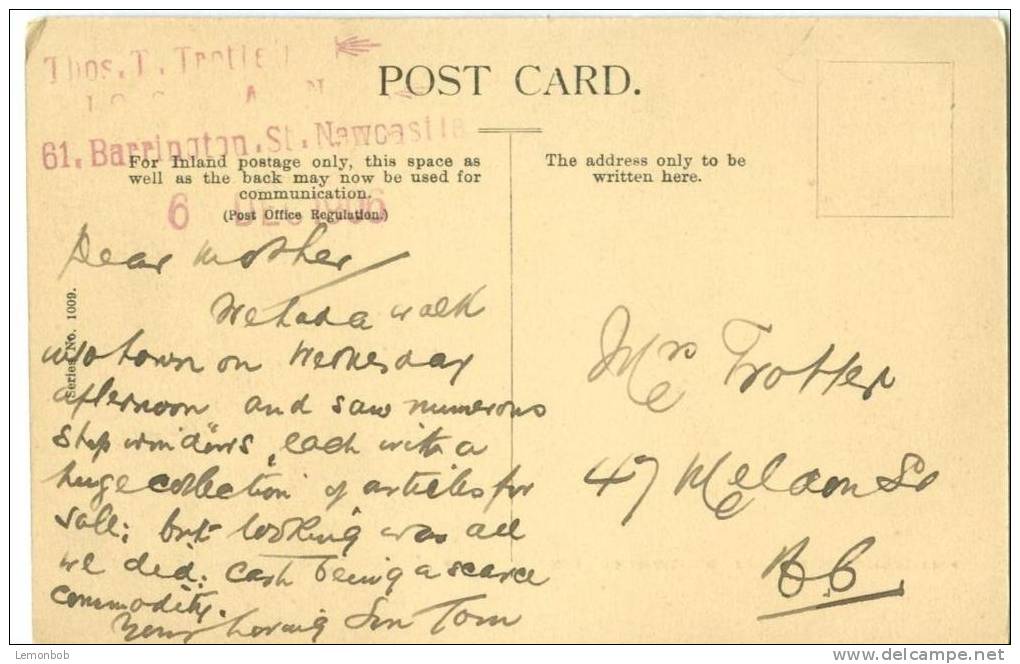 Thos. T. Trotter
61, Barrington. St. Newcastle
POST CARD.
For Inland postage only, this space as
well as the back may now be used for
communication.
(Post Office Regulation.)
The address only to be
written here.
6 DEC 1906
Series No. 1009.
Dear Mother
We had a walk
into town on Wednesday
afternoon and saw numerous
shop windows, each with a
huge collection of articles for
sale; but looking was all
we did; cash being a scarce
commodity.
Your loving Son Tom
Mrs Trotter
47 Meldon St
Lemonbob
www.delcampe.net